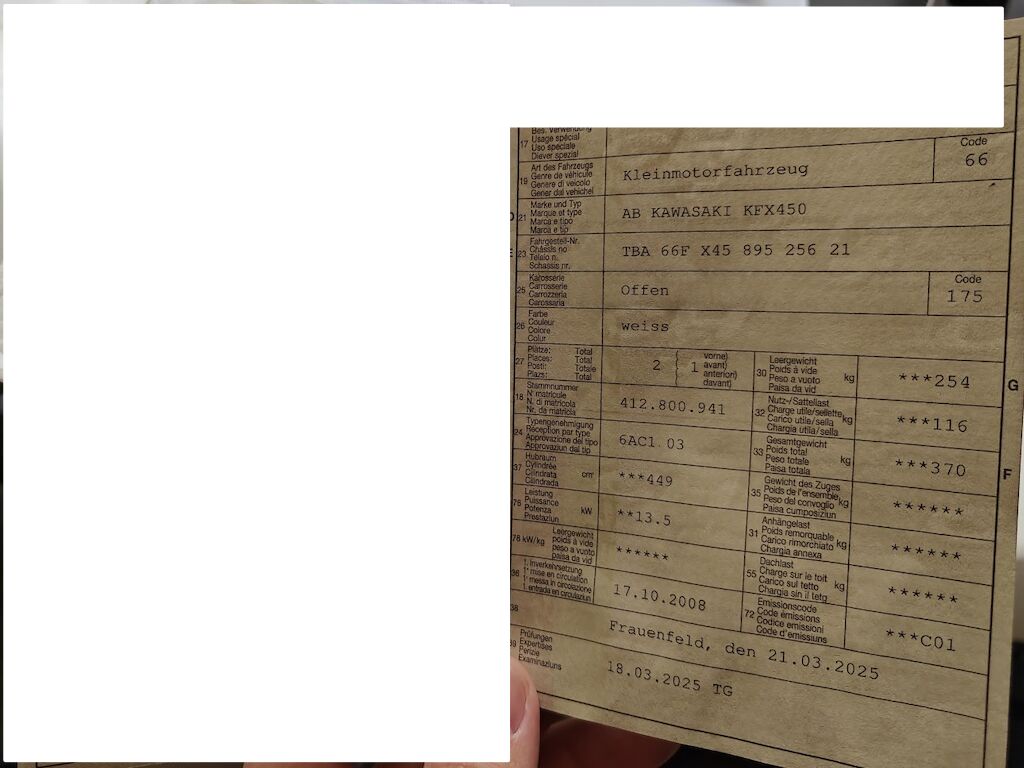 Bes. Verwendung
17 Usage spécial
Uso speciale
Diever spezial
Code
66
19 Art des Fahrzeugs
Genre de véhicule
Genere di veicolo
Gener dal vehichel
Kleinmotorfahrzeug
D 21 Marke und Typ
Marque et type
Marca e tipo
Marca e tip
AB KAWASAKI KFX450
E 23 Fahrgestell-Nr.
Châssis no
Telaio n.
Schassis nr.
TBA 66F X45 895 256 21
25 Karosserie
Carrosserie
Carrozzeria
Carossaria
Offen
Code
175
26 Farbe
Couleur
Colore
Colur
weiss
27 Plätze: Total
Places: Total
Posti: Totale
Plazs: Total
2 ( 1 vorne)
avant)
anteriori)
davant)
30 Leergewicht
Poids à vide kg
Peso a vuoto
Paisa da vid
***254
G
18 Stammnummer
N° matricule
N. di matricola
Nr. da matricla
412.800.941
32 Nutz-/Sattellast
Charge utile/sellette kg
Carico utile/sella
Chargia utila/sella
***116
24 Typengenehmigung
Réception par type
Approvazione del tipo
Approvaziun dal tip
6AC1 03
33 Gesamtgewicht
Poids total kg
Peso totale
Paisa totala
***370
F
37 Hubraum
Cylindrée cm³
Cilindrata
Cilindrada
***449
35 Gewicht des Zuges
Poids de l'ensemble kg
Peso del convoglio
Paisa cumposiziun
******
76 Leistung
Puissance kW
Potenza
Prestaziun
**13.5
31 Anhängelast
Poids remorquable kg
Carico rimorchiato
Chargia annexa
******
78 kW/kg Leergewicht
poids à vide
peso a vuoto
paisa da vid
******
55 Dachlast
Charge sur le toit kg
Carico sul tetto
Chargia sin il tetg
******
36 1. Inverkehrsetzung
1re mise en circulation
1a messa in circolazione
1. entrada en circulaziun
17.10.2008
72 Emissionscode
Code émissions
Codice emissioni
Code d'emissiuns
***C01
38
Frauenfeld, den 21.03.2025
39 Prüfungen
Expertises
Perizie
Examinaziuns
18.03.2025 TG